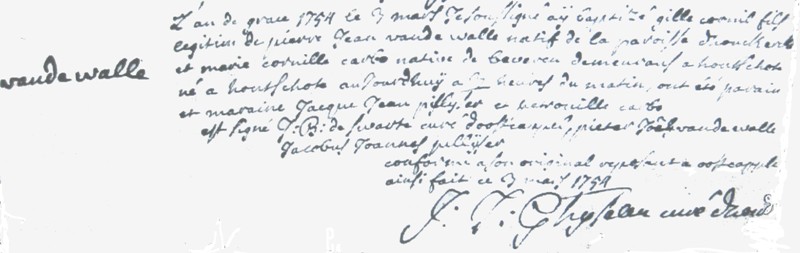 vande walle
L'an de grace 1754 le 3 mars Je sousigné ay baptizé gille cornil fils
legitim de pierre Jean vande walle natif de la paroisse
et marie cornille carbo natine de beveren demeurans a hontschote
né a hontschote aujourdhuy a heures du matin, ont été parain
et maraine Jacque Jean pillyser et carbo
est signé J: B: de swarte curé d'oostcappel, pieter vande walle
Jacobus Joannes pillyser
conforme a son original reposant a oostcappel
ainsi fait ce 3 mars 1754
J: J: Ghyselen curé